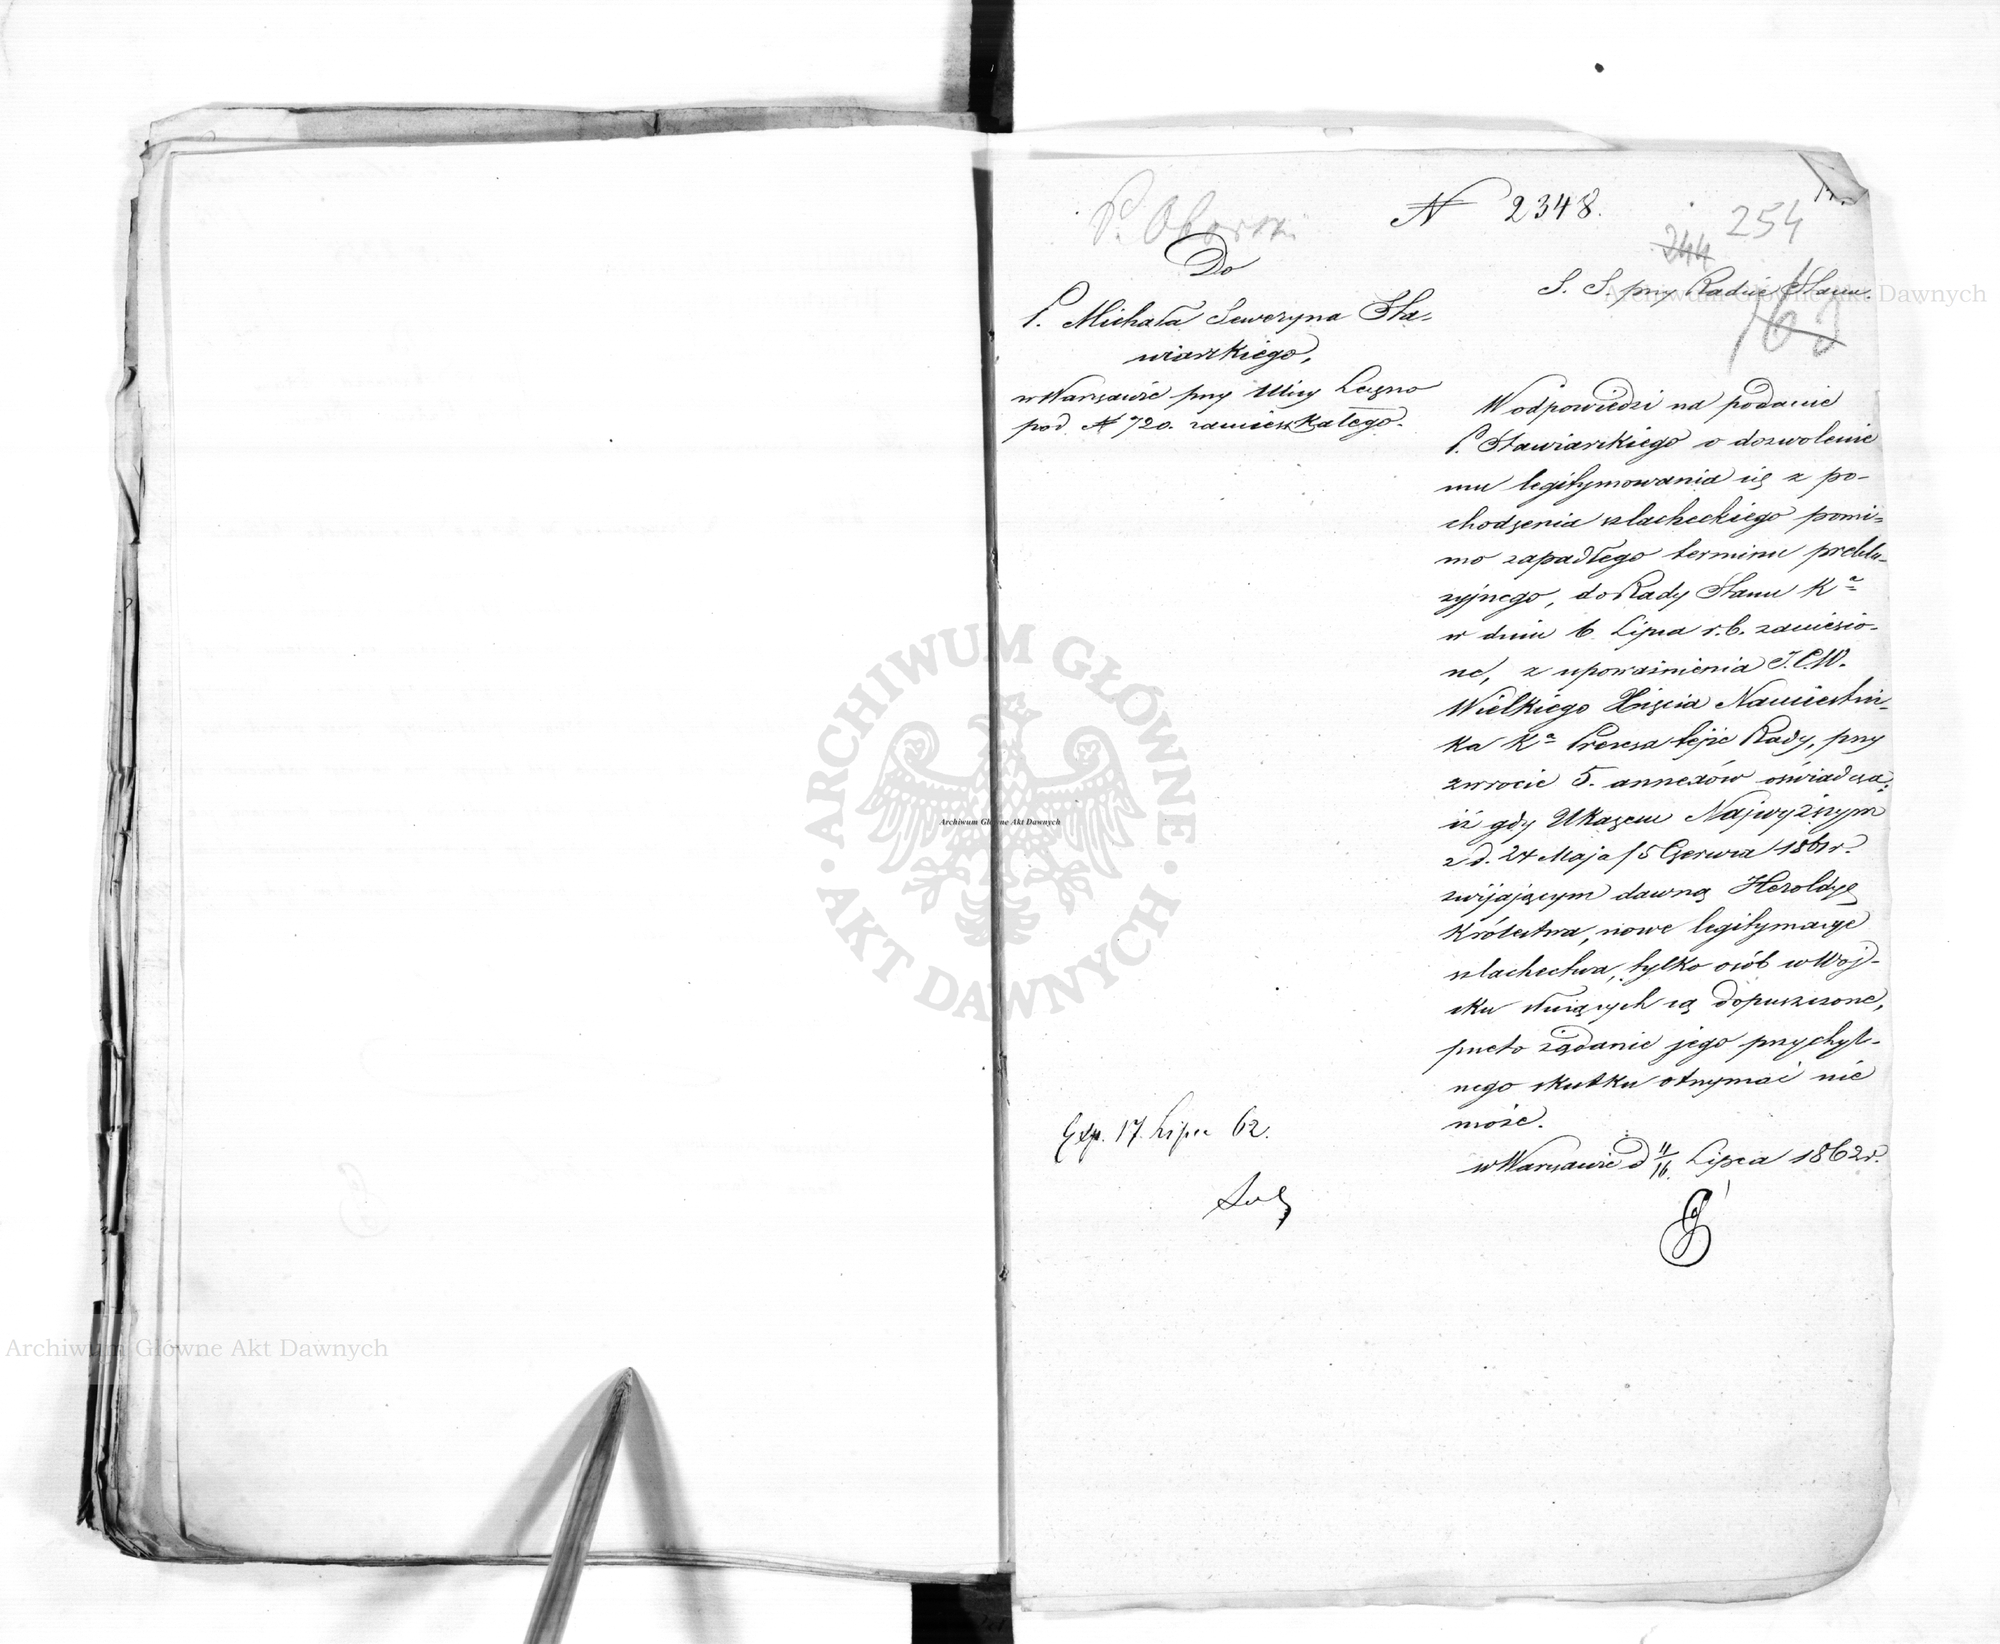 P. Oborski
N 2348.
254
244
163
Do
P. Michała Seweryna Sta-
wiarskiego,
w Warszawie przy Ulicy Leszno
pod N 720. zamieszkałego.
S. S. przy Radzie Stanu.
W odpowiedzi na podanie
P. Stawiarskiego o dozwolenie
mu legitymowania się z po-
chodzenia szlacheckiego pomi-
mo zapadłego terminu preklu-
zyjnego, do Rady Stanu Ka
w dniu 6 Lipca r. b. zaniesio-
ne, z upoważnienia J. C. W.
Wielkiego Xięcia Namiestni-
ka Ka Prezesa tejże Rady, przy
zwrocie 5. annexów oświadcza,
iż gdy Ukazem Najwyższym
z d. 24 Maja/5 Czerwca 1861 r.
zwijającym dawną Heroldyę
Królestwa, nowe legitymacye
szlachectwa, tylko osób w Woj-
sku służących są dopuszczone,
przeto żądanie jego przychyl-
nego skutku otrzymać nie
może.
w Warszawie d 4/16. Lipca 1862 r.
Exp. 17. Lipca 62.
Archiwum Główne Akt Dawnych
ARCHIWUM GŁÓWNE · AKT DAWNYCH ·
Archiwum Główne Akt Dawnych
Archiwum Główne Akt Dawnych